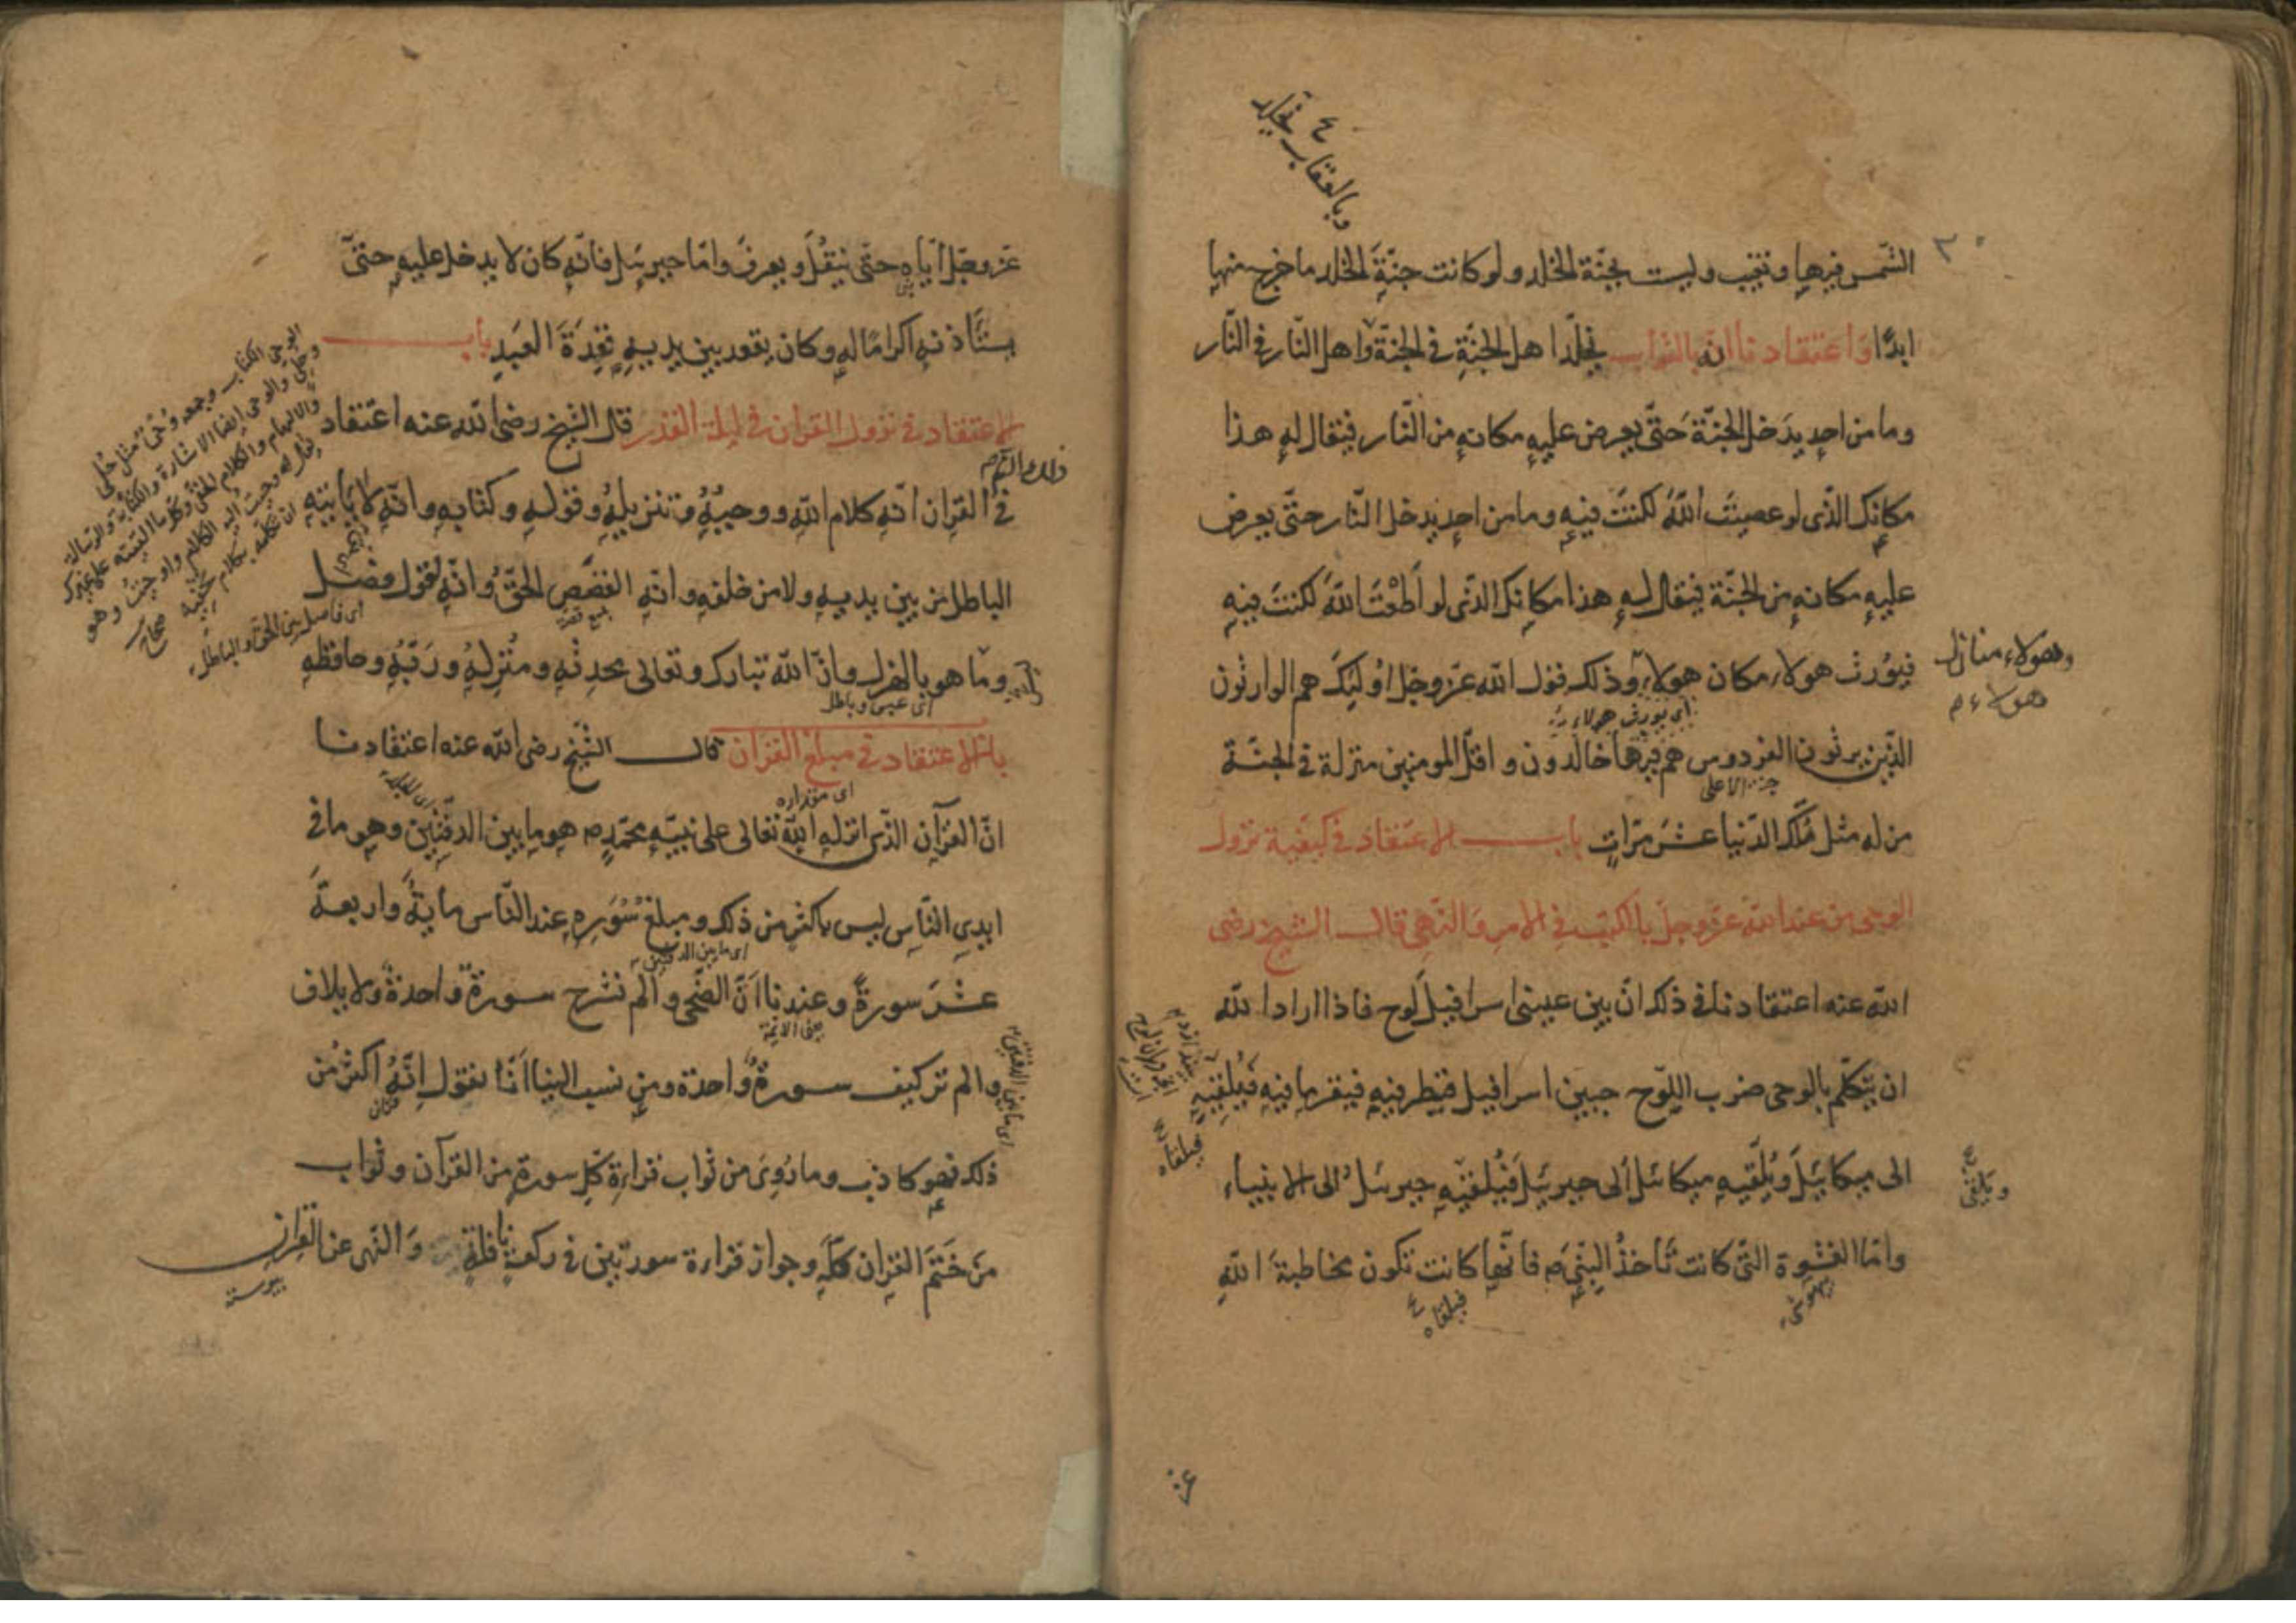 الشّمس فيها وتغيب وليست بجنّة الخلد ولو كانت جنّة الخلد ما خرج منها
ابدًا واعتقادنا انه بالثواب يخلّد اهل الجنّةِ في الجنّة واهل النّار في النّار
وبالعقاب يخلد
وما من احدٍ يدخل الجنّة حتّى يعرض عليه مكانه من النّار فيقال له هذا
مكانك الذّى لو عصيتَ اللّهَ لكنتَ فيهِ وما من احدٍ يدخل النّار حتّى يعرض
عليهِ مكانه من الجنّة فيقال له هذا مكانك الذّى لو أطعْتَ اللّهَ لكنتَ فيهِ
فيورث هولاء مكان هولاء وذلك قول اللّه عزّ وجلّ اُولئِكَ هم الوارثون
وهولاء منازل
هولاء
اى يورث هولاء
الذّين يرثون الفردوس هم فيها خالدون واقلّ المومنين منزلة في الجنّة
من له مثل مُلك الدّنيا عشَر مرّاتٍ باب الاعتقاد في كيفية نزول
الوحى من عند اللّه عزّ وجلّ بالكتب في الامر والنّهى قال الشيخ رضى
اللّه عنه اعتقادنا في ذلك انّ بين عينى اسرافيل لوح فاذا اراد اللّه
ان يتكلّم بالوحى ضرب اللّوح جبين اسرافيل فينظر فيه فيقرا ما فيه فيُلقيهِ
الى ميكائيلَ ويُلقيهِ ميكائيل الى جبرئيلَ فيُلقيهِ جبرئيل الى الانبياء
ويلقى
فيلقاه
وامّا الغشوة التّى كانت تأخذُ النّبىّ ص فانّها كانت تكون مخاطبةَ اللّهِ
بيهوشى
فيلقاه
عزّ وجلّ ايّاه حتّى يثقُل ويعرقَ وامّا جبرئيل فانّه كان لا يدخل عليهِ حتىّ
يستَأذنهِ اكرامًا لهِ وكان يقعد بين يديهِ قِعدَةَ العَبدِ باب
الاعتقاد في نزول القران في ليلة القدر قال الشيخ رضى اللّه عنه اعتقاد
في القران انّه كلام اللّهِ ووحيُهُ وتنزيلهُ وقولهِ وكتابهِ وانّه لا يأتيهِ
الباطل من بين يديهِ ولا من خلفهِ وانّهِ القصَص الحقّ وانّهِ لقول فصل
جمع قصة
اى فاصل بين الحق والباطل
وما هو بالهزل وانّ اللّه تبارك وتعالى محدثهِ ومُنزِلهُ وربّهُ وحافظهِ
اى عبث وباطل
باب الاعتقاد في مبلغ القران قال الشيخ رضى اللّه عنه اعتقادنا
اى مقداره
انّ القرآن الذّى انزلهِ اللّه تعالى على نبيّهِ محمّدٍ ص هو ما بين الدفّتين وهو ما في
ايدى النّاس ليس باكثر من ذلك ومبلغ سُوَرِه عند النّاس مايةً واربعةَ
اى ما بين الدفتين
عشَرَ سورةً وعندنا اَنّ الضّحى والم نشرح سورةً واحدةً ولايلاف
والم تر كيف سورةً واحدة ومن نسب الينا انّا نقول انّهُ اكثر من
قران
اى ما بين الدفتين
ذلك فهو كاذب وما رُوِىَ من ثواب قراءةِ كلّ سورةٍ من القرآن وثواب
مَن خَتَمَ القران كلّهِ وجواز قراءة سورتين في ركعة نافلةٍ والنّهى عن القران
پيوسته